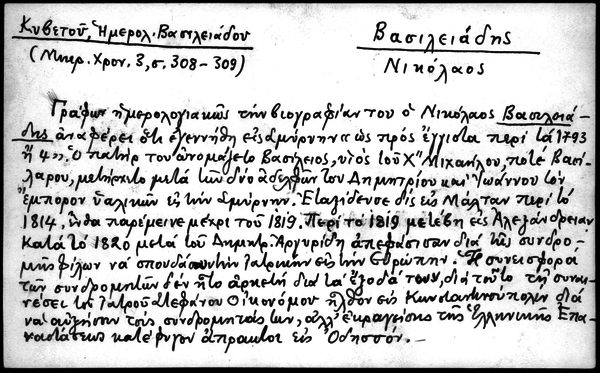 Κυβετοῦ, Ἡμερολ. Βασιλειάδου
(Μικρ. Χρον. 3, σ. 308-309)
Βασιλειάδης
Νικόλαος
Γράφων ἡμερολογιακῶς τὴν βιογραφίαν του ὁ Νικόλαος Βασιλειά-
δης ἀναφέρει ὅτι ἐγεννήθη εἰς Σμύρνην «ὡς πρὸς ἔγγιστα περὶ τὰ 1793
ἢ 4». Ὁ πατὴρ του ὠνομάζετο Βασίλειος, υἱὸς τοῦ Χ" Μιχαήλου, ποτὲ Βασι-
λάρου, μετήρχετο μετὰ τῶν δύο ἀδελφῶν του Δημητρίου καὶ Ἰωάννου τὸν
ἔμπορον ὑαλικῶν εἰς τὴν Σμύρνην. Ἐταξίδευσε δὶς εἰς Μάλταν περὶ τὸ
1814, ἔνθα παρέμεινε μέχρι τοῦ 1819. Περὶ τὸ 1819 μετέβη εἰς Ἀλεξάνδρειαν.
Κατὰ τὸ 1820 μετὰ τοῦ Δημητρ. Ἀργυρίδη ἀπεφάσισαν διὰ τῆς συνδρο-
μῆς φίλων νὰ σπουδάσουν τὴν ἰατρικὴν εἰς τὴν Εὐρώπην. Ἡ συνεισφορὰ
τῶν συνδρομητῶν δὲν ἦτο ἀρκετὴ διὰ τὰ ἔξοδά τους, διὰ τοῦτο τῇ συναι-
νέσει τοῦ ἰατροῦ Στεφάνου Οἰκονόμου ἦλθον εἰς Κωνσταντινούπολιν διὰ
νὰ αὐξήσουν τοὺς συνδρομητάς των, ἀλλ' ἐκραγείσης τῆς Ἑλληνικῆς Ἐπα-
ναστάσεως κατέφυγον ἄπρακτοι εἰς Ὀδησσόν.-